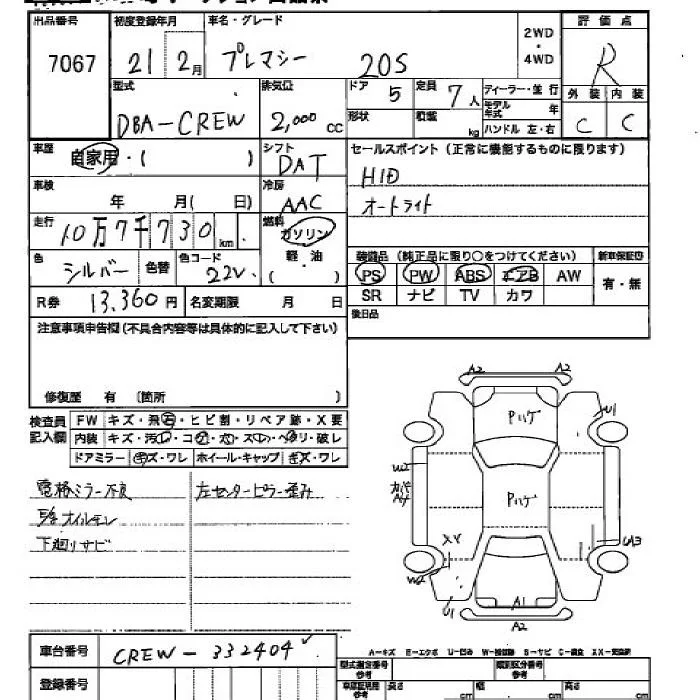 出品番号 初度登録年月 車名・グレード 2WD・4WD 評価点
7067 21 2月 プレマシー 20S R
型式 排気位 ドア 5 定員 7人 ディーラー・並行 外装 内装
DBA-CREW 2,000cc 形状 積載 kg モデル年式 年 ハンドル 左・右 C C
車歴 自家用・( ) シフト DAT セールスポイント(正常に機能するものに限ります)
車検 年 月( 日) 冷房 AAC HID
オートライト
走行 10万7千730km 燃料 ガソリン
軽・油
( )
色 シルバー 色替 色コード 22V
装備品(純正品に限り○をつけてください) 新車保証書
PS PW ABS エアB AW 有・無
SR ナビ TV カワ
R券 13,360円 名変期限 月 日
後日品
注意事項申告欄(不具合内容等は具体的に記入して下さい)
修復歴 有 (箇所 )
検査員記入欄 FW キズ・飛石・ヒビ割・リペア跡・X要
内装 キズ・汚レ・コゲ・穴・スレ・ヘタリ・破レ
ドアミラー キズ・ワレ ホイール・キャップ キズ・ワレ
電格ミラー不良 左センターピラー歪み
下廻リサビ
A2 A2
Pハゲ
U1
W2
Pハゲ
XV
W2
UA3
U1
A1
A2
車台番号 CREW-332404
登録番号
A-キズ E-エクボ U-凹み W-補修跡 S-サビ C-腐食 XX-交換済
型式指定番号 参考 類別区分番号 参考
長さ cm 幅 cm 高さ cm